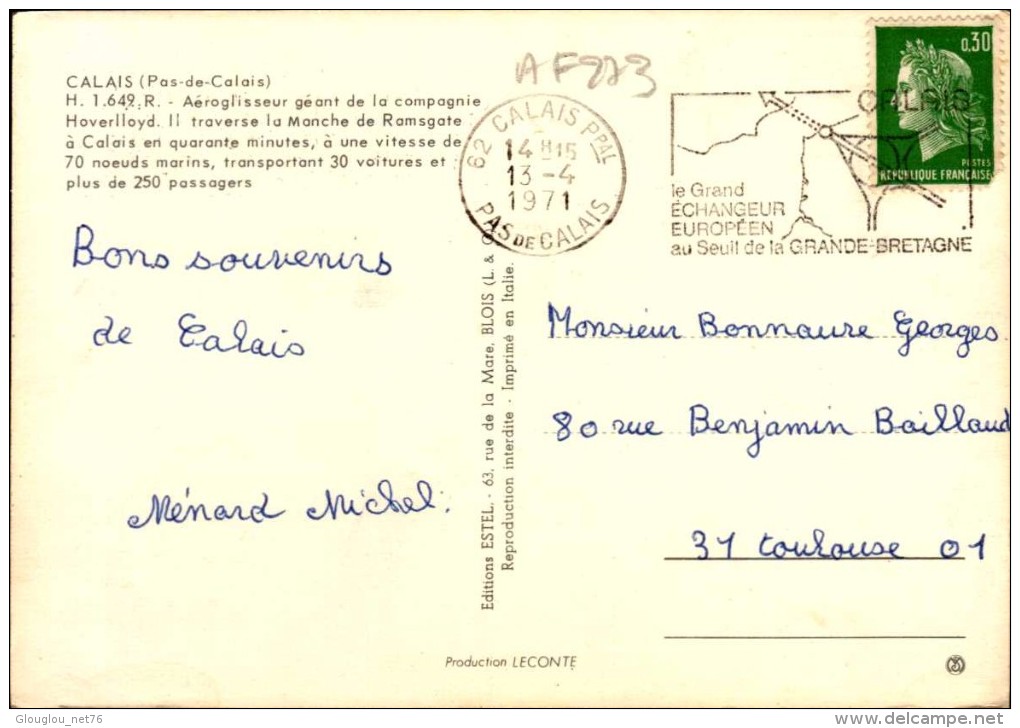 CALAIS (Pas-de-Calais)
H. 1.649. R. - Aéroglisseur géant de la compagnie
Hoverlloyd. Il traverse la Manche de Ramsgate
à Calais en quarante minutes, à une vitesse de
70 noeuds marins, transportant 30 voitures et
plus de 250 passagers
Bons souvenirs
de Calais
Ménard Michel.
AF223
62 CALAIS PPAL
14 H15
13 - 4
1971
PAS DE CALAIS
CALAIS
le Grand
ÉCHANGEUR
EUROPÉEN
au Seuil de la GRANDE-BRETAGNE
0,30
POSTES
RÉPUBLIQUE FRANÇAISE
Editions ESTEL. - 63, rue de la Mare, BLOIS (L. &
Reproduction interdite - Imprimé en Italie.
Monsieur Bonnaure Georges
80 rue Benjamin Baillaud
31 toulouse 01
Production LECONTE
Glouglou_net76
delcampe.net